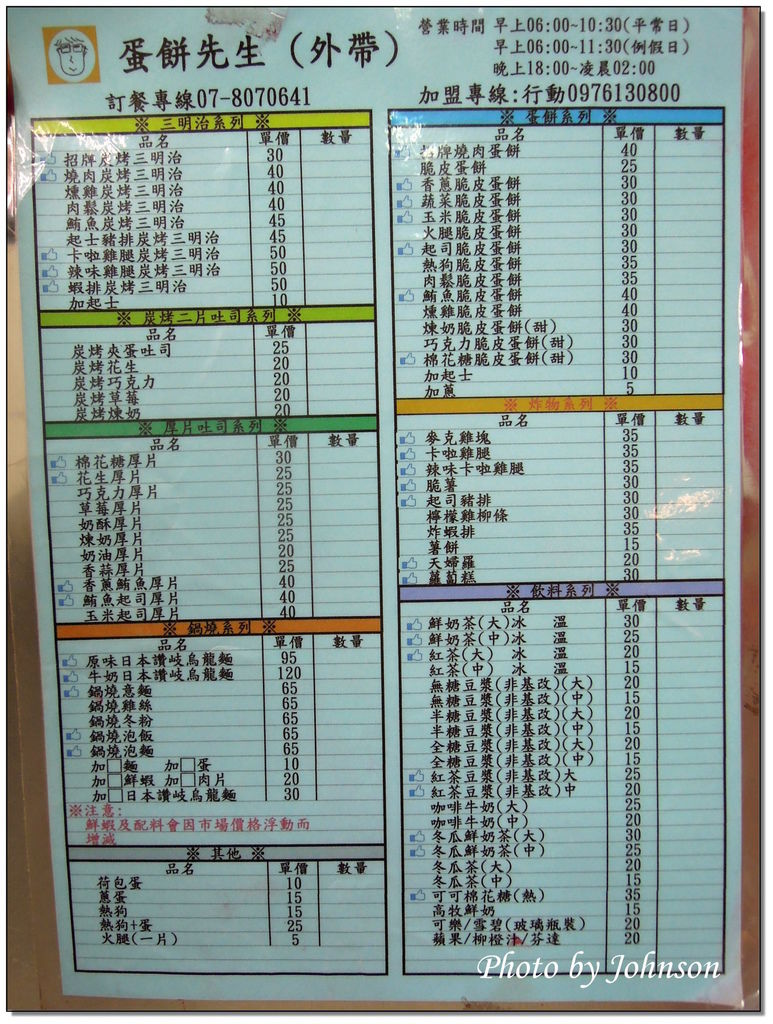 蛋餅先生（外帶）
營業時間 早上06:00~10:30(平常日)
早上06:00~11:30(例假日)
晚上18:00~凌晨02:00
訂餐專線07-8070641
加盟專線:行動0976130800
※ 三明治系列 ※
品名 單價 數量
招牌炭烤三明治 30
燒肉炭烤三明治 40
燻雞炭烤三明治 40
肉鬆炭烤三明治 40
鮪魚炭烤三明治 45
起士豬排炭烤三明治 45
卡啦雞腿炭烤三明治 50
辣味雞腿炭烤三明治 50
蝦排炭烤三明治 50
加起士 10
※ 炭烤二片吐司系列 ※
品名 單價
炭烤夾蛋吐司 25
炭烤花生 20
炭烤巧克力 20
炭烤草莓 20
炭烤煉奶 20
※ 厚片吐司系列 ※
品名 單價 數量
棉花糖厚片 30
花生厚片 25
巧克力厚片 25
草莓厚片 25
奶酥厚片 25
煉奶厚片 25
奶油厚片 20
香蒜厚片 25
香蔥鮪魚厚片 40
鮪魚起司厚片 40
玉米起司厚片 40
※ 鍋燒系列 ※
品名 單價 數量
原味日本讚岐烏龍麵 95
牛奶日本讚岐烏龍麵 120
鍋燒意麵 65
鍋燒雞絲 65
鍋燒冬粉 65
鍋燒泡飯 65
鍋燒泡麵 65
加□麵 加□蛋 10
加□鮮蝦 加□肉片 20
加□日本讚岐烏龍麵 30
※注意:
鮮蝦及配料會因市場價格浮動而
增減
※ 其他 ※
品名 單價 數量
荷包蛋 10
蔥蛋 15
熱狗 15
熱狗+蛋 25
火腿(一片) 5
※ 蛋餅系列 ※
品名 單價 數量
招牌燒肉蛋餅 40
脆皮蛋餅 25
香蔥脆皮蛋餅 30
蔬菜脆皮蛋餅 30
玉米脆皮蛋餅 30
火腿脆皮蛋餅 30
起司脆皮蛋餅 30
熱狗脆皮蛋餅 35
肉鬆脆皮蛋餅 35
鮪魚脆皮蛋餅 40
燻雞脆皮蛋餅 40
煉奶脆皮蛋餅(甜) 30
巧克力脆皮蛋餅(甜) 30
棉花糖脆皮蛋餅(甜) 30
加起士 10
加蔥 5
※ 炸物系列 ※
品名 單價 數量
麥克雞塊 35
卡啦雞腿 35
辣味卡啦雞腿 35
脆薯 30
起司豬排 30
檸檬雞柳條 30
炸蝦排 35
薯餅 15
天婦羅 20
蘿蔔糕 30
※ 飲料系列 ※
品名 單價 數量
鮮奶茶(大)冰 溫 30
鮮奶茶(中)冰 溫 25
紅茶(大) 冰 溫 20
紅茶(中) 冰 溫 15
無糖豆漿(非基改)(大) 20
無糖豆漿(非基改)(中) 15
半糖豆漿(非基改)(大) 20
半糖豆漿(非基改)(中) 15
全糖豆漿(非基改)(大) 20
全糖豆漿(非基改)(中) 15
紅茶豆漿(非基改)大 25
紅茶豆漿(非基改)中 20
咖啡牛奶(大) 25
咖啡牛奶(中) 20
冬瓜鮮奶茶(大) 30
冬瓜鮮奶茶(中) 25
冬瓜茶(大) 20
冬瓜茶(中) 15
可可棉花糖(熱) 35
高牧鮮奶 15
可樂/雪碧(玻璃瓶裝) 20
蘋果/柳橙汁/芬達 20
Photo by Johnson